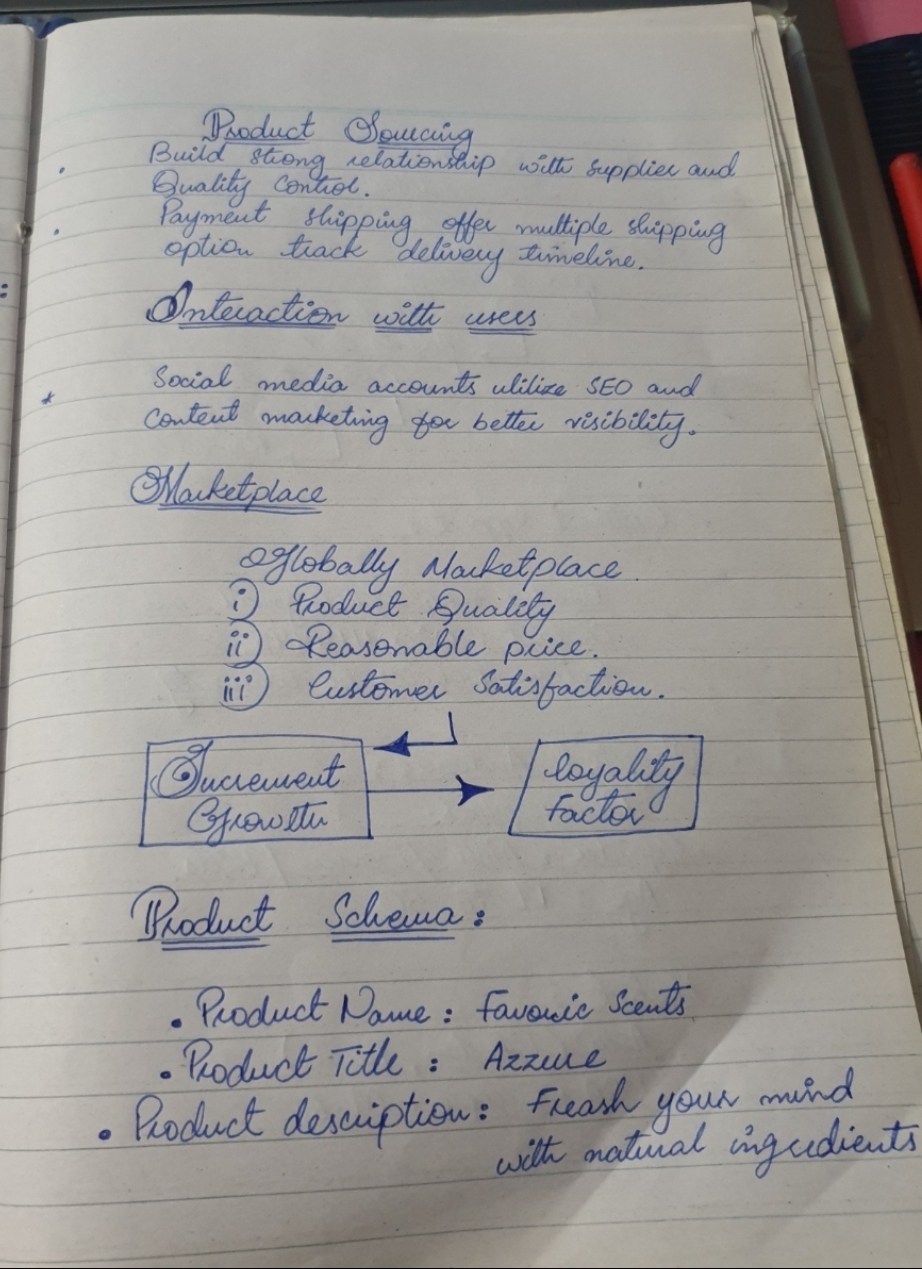 Product Sourcing
• Build strong relationship with supplier and
Quality Control.
• Payment shipping offer multiple shipping
option track delivery timeline.
:
Interaction with users
* Social media accounts utilize SEO and
Content marketing for better visibility.
Marketplace
Globally Marketplace.
i) Product Quality
ii) Reasonable price.
iii) Customer Satisfaction.
Increment
Growth
loyality
factor
Product Schema:
• Product Name: Favouric Scents
• Product Title: Azzure
• Product description: Freash your mind
with natural ingredients